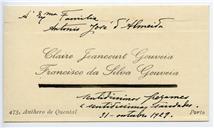 A' Exma Familia
Antonio José d'Almeida
Claire Jeancourt Gouveia
Francisco da Silva Gouveia
sentidissimos pezames
e sentidissimas saudades
31-outubro 1929.
475, Anthero de Quental
Porto